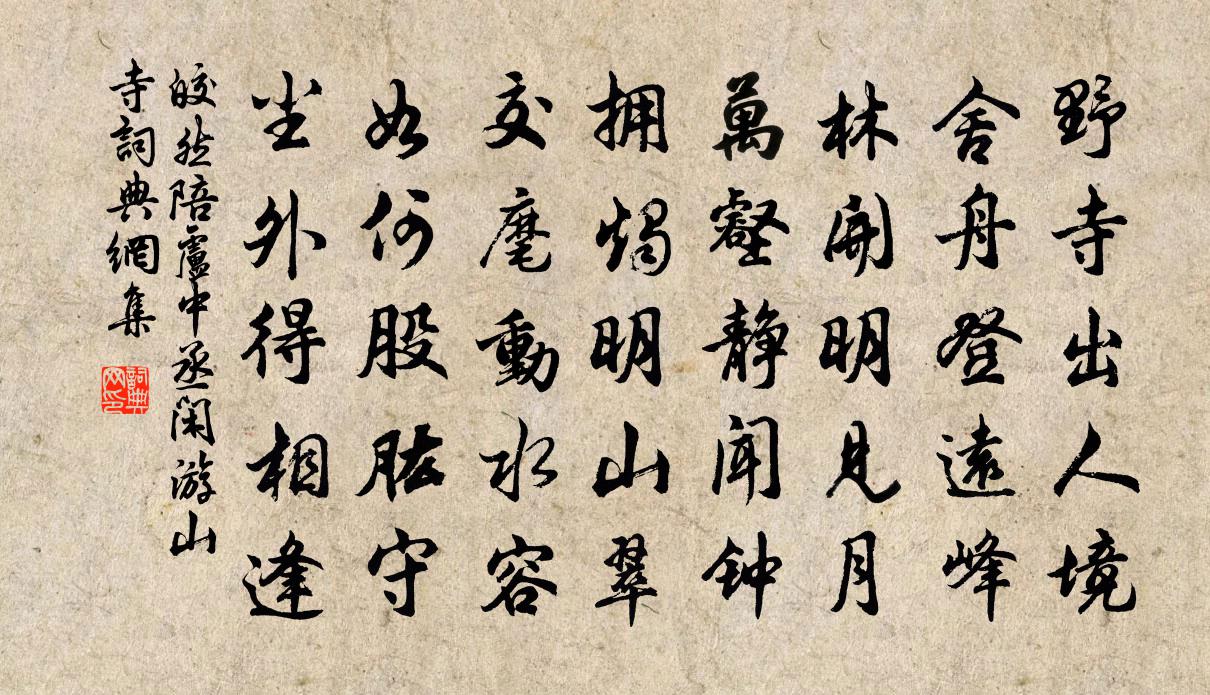 野寺出人境
舍舟登遠峰
林開明見月
萬壑靜聞钟
拥燭明山翠
交麾動水容
如何股肱守
塵外得相逢
皎然陪盧中丞閑游山
寺詞典網集
詞典网印